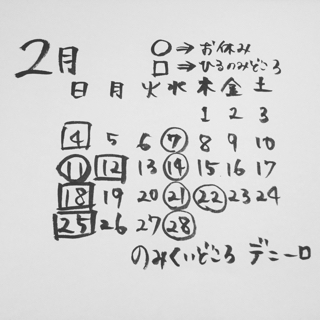 2月
○⇒お休み
□⇒ひるのみどころ
日 月 火 水 木 金 土
1 2 3
4 5 6 7 8 9 10
11 12 13 14 15 16 17
18 19 20 21 22 23 24
25 26 27 28
のみくいどころ デニーロ